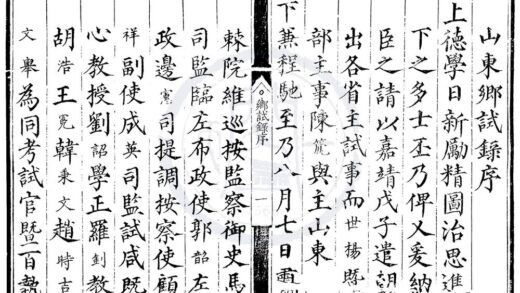 山東鄉試錄序
上德學日新勵精圖治思進
下之多士丕乃俾乂爰納
臣之請以嘉靖戊子遣朝
出各省主試事而世揚暨
部主事陳與主山東
下兼程馳至乃八月七日
鄉試錄序 一
棘院維巡按監察御史馬
司監臨左布政使郭韶左
政邊憲司提調按察使顧
祥副使成英司監試咸既
心教授劉詔學正羅釗教
胡浩王冕韓秉文趙時吉
文舉為同考試官暨百執